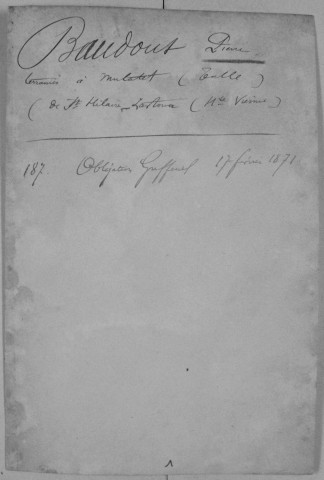 Baudout Pierre
terrassier à Mulatet (Tulle)
(de St Hilaire-Lastours (Hte Vienne)
187. Obligation Guffroul 17 février 1871
1